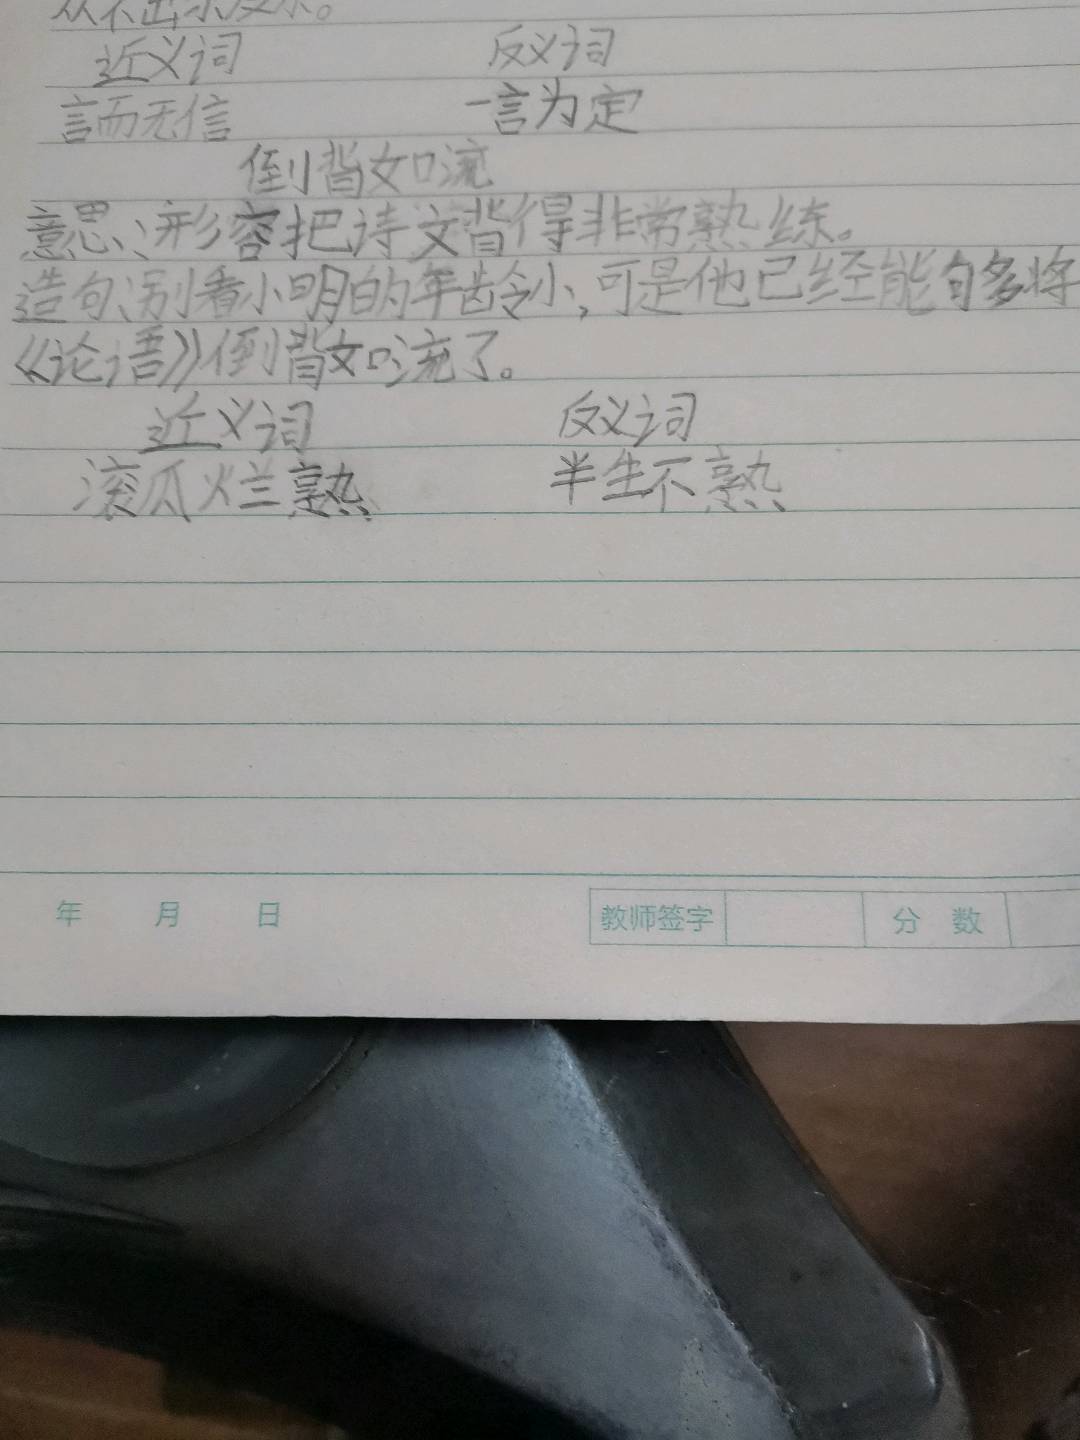 近义词 反义词
言而无信 一言为定
倒背如流
意思:形容把诗文背得非常熟练。
造句:别看小明的年龄小,可是他已经能句多将
《论语》倒背如流了。
近义词 反义词
滚瓜烂熟 半生不熟
年 月 日
教师签字 分 数